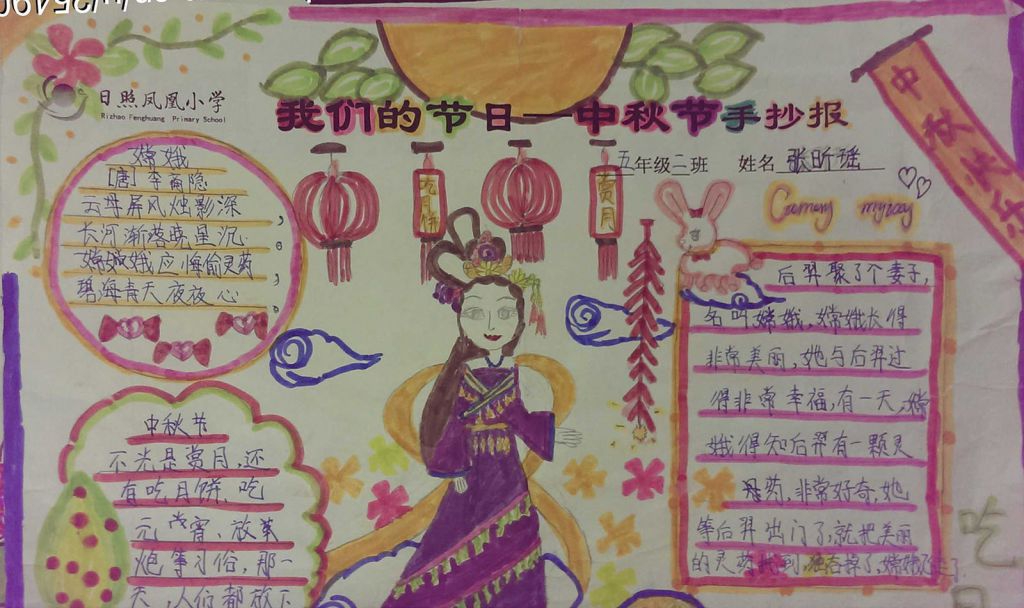 日照凤凰小学
Rizhao Fenghuang Primary School
我们的节日—中秋节手抄报
五年级二班 姓名 张昕瑶
中秋快乐
吃月饼
赏月
嫦娥
[唐] 李商隐
云母屏风烛影深,
长河渐落晓星沉。
嫦娥应悔偷灵药,
碧海青天夜夜心。
中秋节
不光是赏月,还
有吃月饼、吃
元宵、放菜
炮等习俗,那一
天,人们都放下
后羿娶了个妻子,
名叫嫦娥,嫦娥长得
非常美丽,她与后羿过
得非常幸福,有一天,嫦
娥得知后羿有一颗灵
药,非常好奇,她
等后羿出门了,就把美丽
的灵药找到,
吃